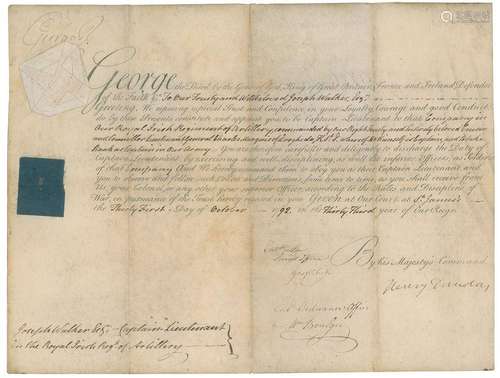 George R
George the Third by the Grace of God, King of Great Britain, France and Ireland, Defender
of the Faith &c. To Our Trusty and Welbeloved Joseph Walker, Esqr.
Greeting. We reposing especial Trust and Confidence in your Loyalty, Courage and good Conduct
do by these Presents constitute and appoint you to be Captain Lieutenant to that Company in
Our Royal Irish Regiment of Artillery, commanded by our Right Trusty and Entirely beloved Cousin
and Lieutenant General Marquis of Drogheda, K.P. whereof himself is Captain, and to take
Rank as Captain in Our Army. You are therefore to discharge the Duty of
Captain Lieutenant by exercising and well disciplining, as well the inferior Officers, as Soldiers
of that Company And We do hereby command them to obey you as their Captain Lieutenant and
you to observe and follow such Orders and Directions, from time to time, as you shall receive from
Us, your Colonel, or any other your superior Officer, according to the Rules and Discipline of
War, in pursuance of the Trust hereby reposed in you. Given at Our Court at St. James's
the Thirty First Day of October 1792, in the Thirty Third year of Our Reign
By His Majesty's Command
Henry Dundas
Ordnance Office
Joseph Walker Esqr. Captain Lieutenant
in the Royal Irish Regt. of Artillery